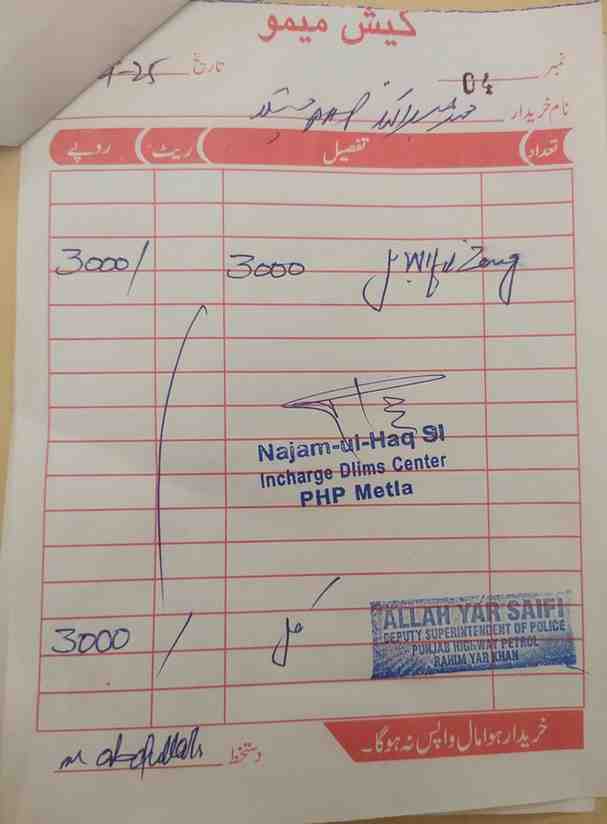 کیش میمو
نمبر 04 تاریخ 4-25
نام خریدار PHP
تعداد تفصیل ریٹ روپے
Zong 3000 3000/
Najam-ul-Haq SI
Incharge Dlims Center
PHP Metla
ALLAH YAR SAIFI
DEPUTY SUPERINTENDENT OF POLICE
PUNJAB HIGHWAY PETROL
RAHIM YAR KHAN
3000 /
خریدا ہوا مال واپس نہ ہوگا۔
دستخط M abdullah